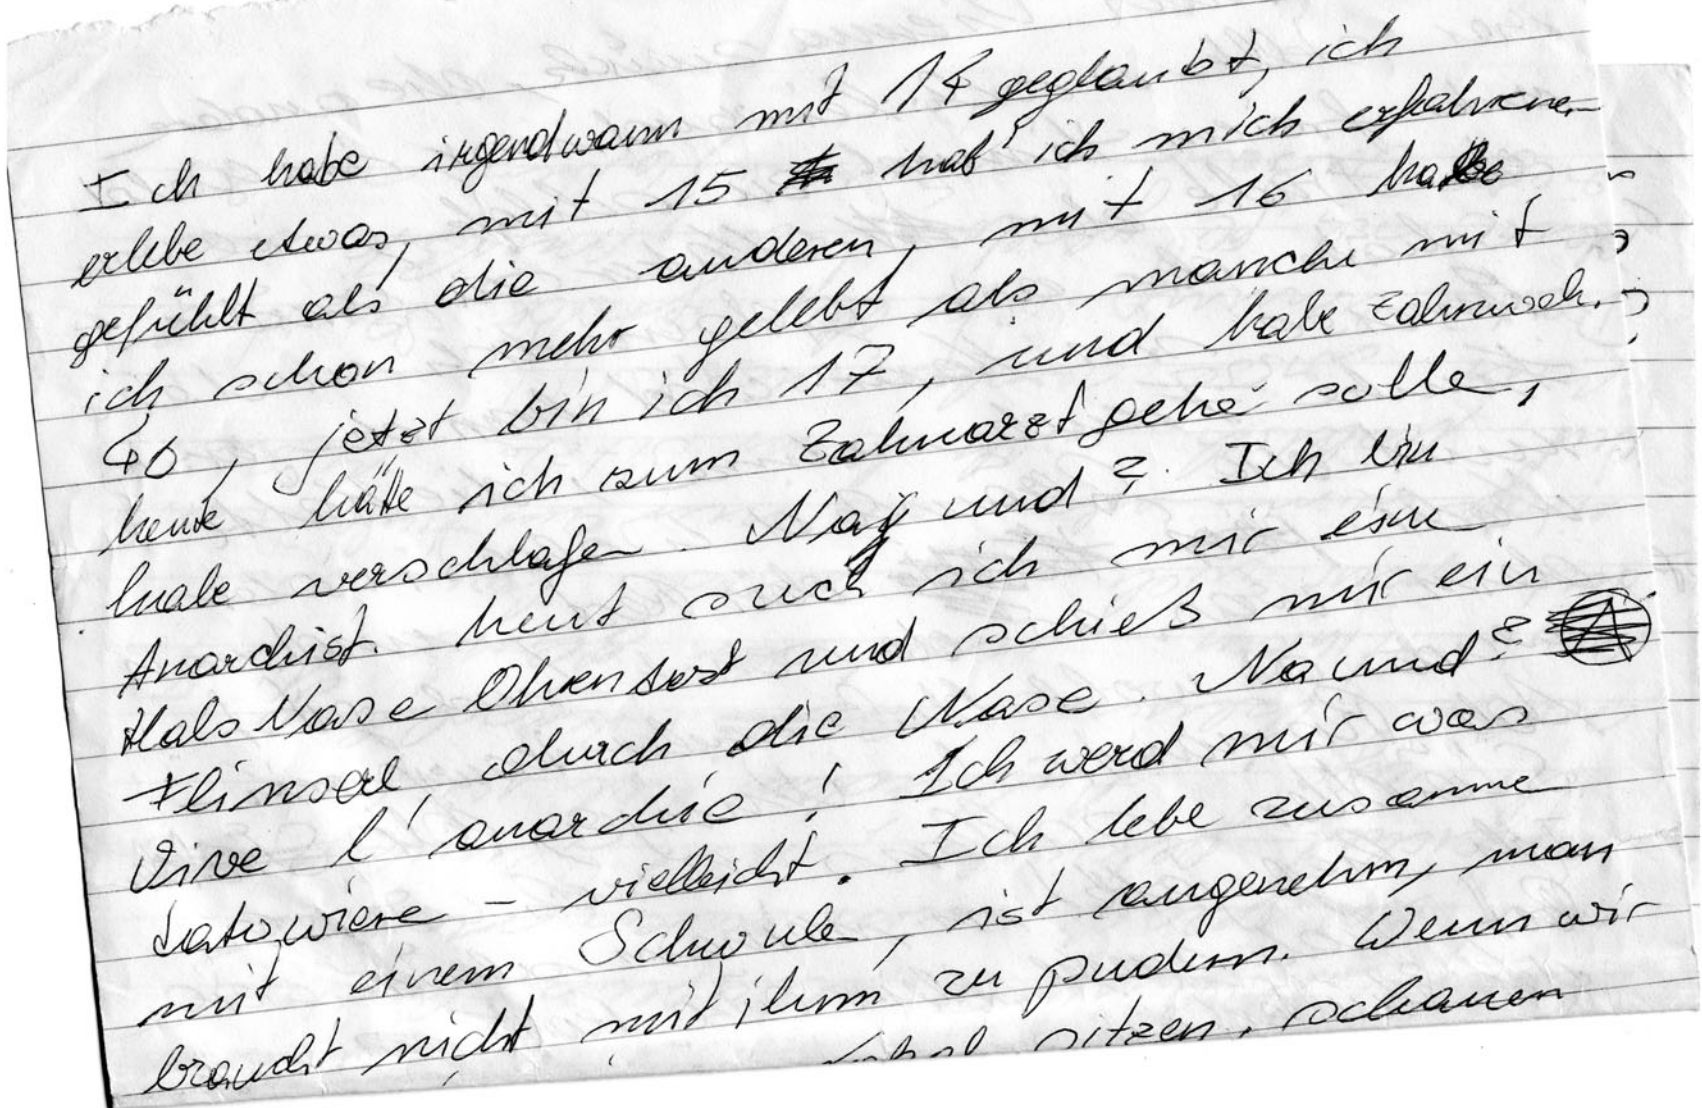 Ich habe irgendwann mit 14 geglaubt, ich
erlebe etwas, mit 15 hab' ich mich erfahrener
gefühlt als die anderen, mit 16 habe
ich schon mehr gelebt als manche mit
40, jetzt bin ich 17, und habe Zahnweh.
heute hätte ich zum Zahnarzt gehe solle,
habe verschlafen. Na und? Ich bin
Anarchist. heut such ich mir eine
Hals Nase Ohren und schieß mir ein
Flinserl, durch die Nase. Na und?
Vive l'anarchie! Ich werd mir was
tatowiere - vielleicht. Ich lebe zusamme
mit einem Schwule, ist angenehm, man
braucht nicht mit ihm zu pudern. Wenn wir
Lokal sitzen, schauen